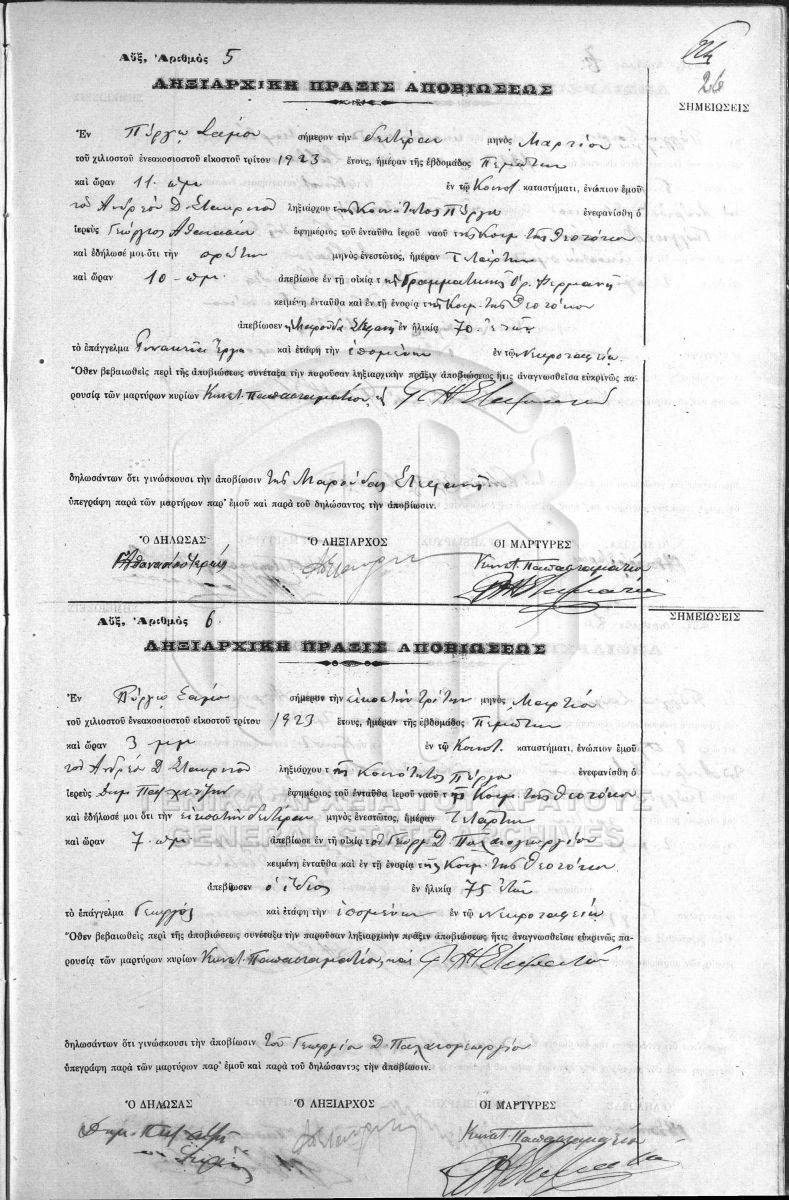 26
Αὔξ. Ἀριθμὸς 5
ΛΗΞΙΑΡΧΙΚΗ ΠΡΑΞΙΣ ΑΠΟΒΙΩΣΕΩΣ
ΣΗΜΕΙΩΣΕΙΣ
Ἐν Πύργῳ Σάμου σήμερον τὴν δευτέραν μηνὸς Μαρτίου
τοῦ χιλιοστοῦ ἐνεακοσιοστοῦ εἰκοστοῦ τρίτου 1923 ἔτους, ἡμέραν τῆς ἑβδομάδος Πέμπτην
καὶ ὥραν 11 πμ ἐν τῷ Κοινοτ. καταστήματι, ἐνώπιον ἐμοῦ
τοῦ Ἀνδρέου Δ. Σταυρινοῦ ληξιάρχου τῆς Κοινότητος Πύργου ἐνεφανίσθη ὁ
ἱερεὺς Γεώργιος Ἀθανασίου ἐφημέριος τοῦ ἐνταῦθα ἱεροῦ ναοῦ τῆς Κοιμ. τῆς Θεοτόκου
καὶ ἐδήλωσέ μοι ὅτι τὴν πρώτην μηνὸς ἐνεστῶτος, ἡμέραν Τετάρτην
καὶ ὥραν 10 πμ. ἀπεβίωσε ἐν τῇ οἰκίᾳ τῆς Γραμματικῆς
κειμένῃ ἐνταῦθα καὶ ἐν τῇ ἐνορίᾳ τῆς Κοιμ. τῆς Θεοτόκου
ἀπεβίωσεν ἡ Μαρούδα ἐν ἡλικίᾳ 70 ἐτῶν
τὸ ἐπάγγελμα Γυναικεῖα ἔργα καὶ ἐτάφη τὴν ἑπομένην ἐν τῷ Νεκροταφείῳ.
Ὅθεν βεβαιωθεὶς περὶ τῆς ἀποβιώσεως συνέταξα τὴν παροῦσαν ληξιαρχικὴν πρᾶξιν ἀποβιώσεως ἥτις ἀναγνωσθεῖσα εὐκρινῶς πα-
ρουσίᾳ τῶν μαρτύρων κυρίων Κωνστ. Παπασταματίου
δηλωσάντων ὅτι γινώσκουσι τὴν ἀποβίωσιν τῆς Μαρούδας
ὑπεγράφη παρὰ τῶν μαρτύρων παρ' ἐμοῦ καὶ παρὰ τοῦ δηλώσαντος τὴν ἀποβίωσιν.
Ὁ ΔΗΛΩΣΑΣ Ὁ ΛΗΞΙΑΡΧΟΣ ΟΙ ΜΑΡΤΥΡΕΣ
Κωνστ. Παπασταματίου
Αὔξ. Ἀριθμὸς 6
ΣΗΜΕΙΩΣΕΙΣ
ΛΗΞΙΑΡΧΙΚΗ ΠΡΑΞΙΣ ΑΠΟΒΙΩΣΕΩΣ
Ἐν Πύργῳ Σάμου σήμερον τὴν εἰκοστὴν τρίτην μηνὸς Μαρτίου
τοῦ χιλιοστοῦ ἐνεακοσιοστοῦ εἰκοστοῦ τρίτου 1923 ἔτους, ἡμέραν τῆς ἑβδομάδος Πέμπτην
καὶ ὥραν 3 μμ ἐν τῷ Κοινοτ. καταστήματι, ἐνώπιον ἐμοῦ
τοῦ Ἀνδρέου Δ Σταυρινοῦ ληξιάρχου τῆς Κοινότητος Πύργου ἐνεφανίσθη ὁ
ἱερεὺς Δημ. ἐφημέριος τοῦ ἐνταῦθα ἱεροῦ ναοῦ τῆς Κοιμ. τῆς Θεοτόκου
ΓΕΝΙΚΑ ΑΡΧΕΙΑ ΤΟΥ ΚΡΑΤΟΥΣ
καὶ ἐδήλωσέ μοι ὅτι τὴν εἰκοστὴν δευτέραν μηνὸς ἐνεστῶτος, ἡμέραν Τετάρτην
GENERAL STATE ARCHIVES
καὶ ὥραν 7 πμ. ἀπεβίωσε ἐν τῇ οἰκίᾳ τοῦ Γεωργ. Δ. Παλαιογεωργίου
κειμένῃ ἐνταῦθα καὶ ἐν τῇ ἐνορίᾳ τῆς Κοιμ. τῆς Θεοτόκου
ἀπεβίωσεν ὁ ἴδιος ἐν ἡλικίᾳ 75 ἐτῶν
τὸ ἐπάγγελμα Γεωργὸς καὶ ἐτάφη τὴν ἑπομένην ἐν τῷ Νεκροταφείῳ
Ὅθεν βεβαιωθεὶς περὶ τῆς ἀποβιώσεως συνέταξα τὴν παροῦσαν ληξιαρχικὴν πρᾶξιν ἀποβιώσεως ἥτις ἀναγνωσθεῖσα εὐκρινῶς πα-
ρουσίᾳ τῶν μαρτύρων κυρίων Κωνστ. Παπασταματίου καὶ
δηλωσάντων ὅτι γινώσκουσι τὴν ἀποβίωσιν τοῦ Γεωργίου Δ. Παλαιογεωργίου
ὑπεγράφη παρὰ τῶν μαρτύρων παρ' ἐμοῦ καὶ παρὰ τοῦ δηλώσαντος τὴν ἀποβίωσιν.
Ὁ ΔΗΛΩΣΑΣ Ὁ ΛΗΞΙΑΡΧΟΣ ΟΙ ΜΑΡΤΥΡΕΣ
Κωνστ. Παπασταματίου